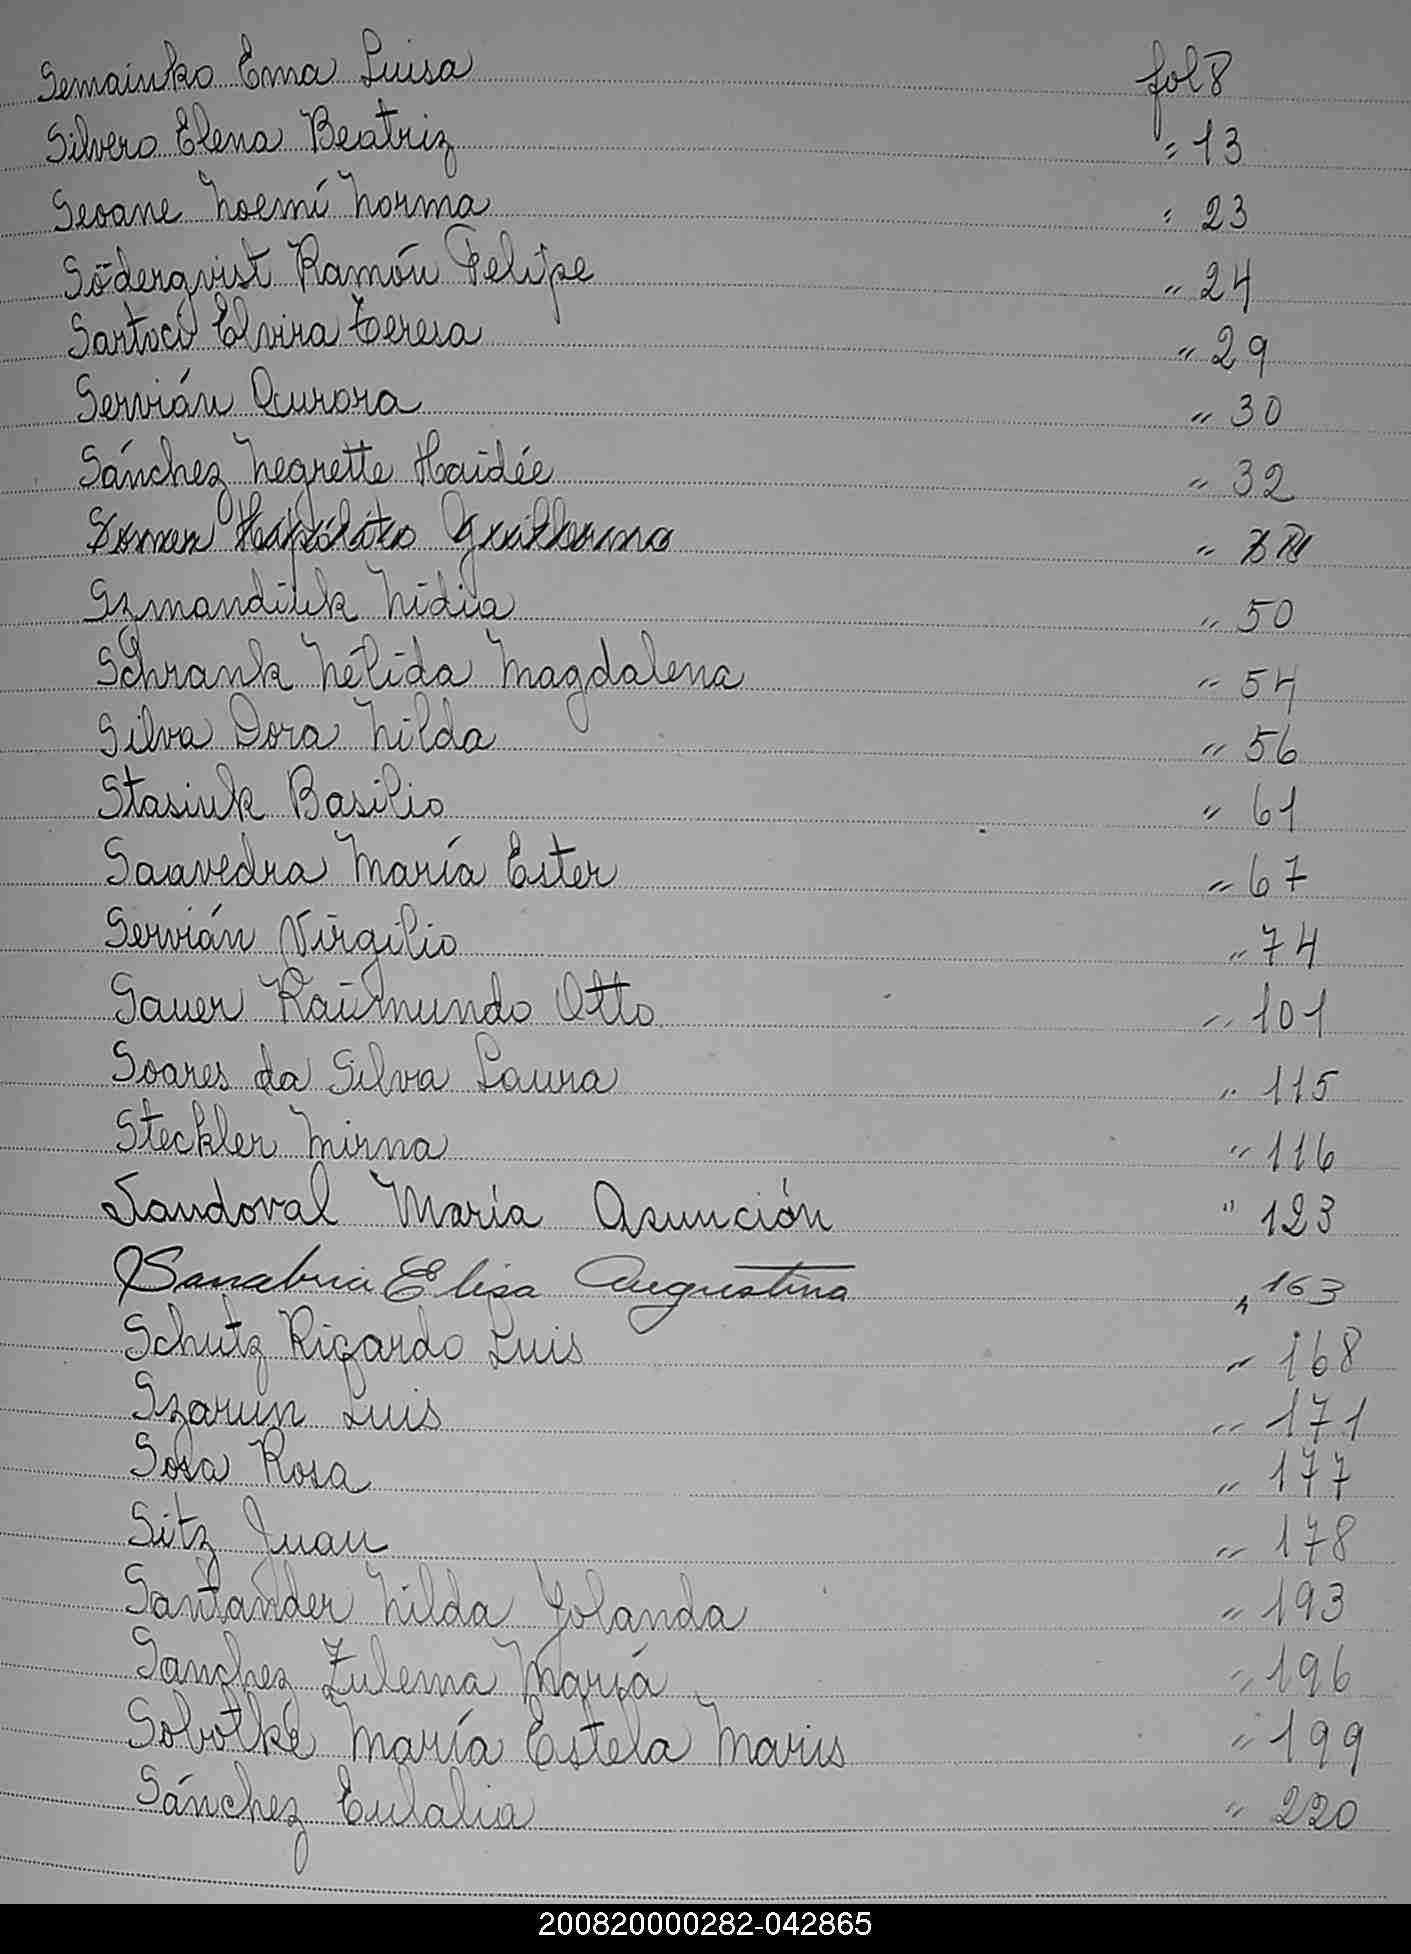 Semainko Ema Luisa fol 8
Silvero Elena Beatriz " 13
Seoane Noemí Norma " 23
Söderqvist Ramón Felipe " 24
Sartori Elvira Teresa " 29
Servián Aurora " 30
Sánchez Negrette Haidée " 32
Hipólito Guillermo "
Szmandiuk Nidia " 50
Schrank Nélida Magdalena " 54
Silva Dora Nilda " 56
Stasiuk Basilio " 61
Saavedra María Ester " 67
Servián Virgilio " 74
Sauer Raimundo Otto " 101
Soares da Silva Laura " 115
Steckler Mirna " 116
Sandoval María Asunción " 123
Sanabria Elisa Augustina " 163
Schutz Ricardo Luis " 168
Szarun Luis " 171
Sosa Rosa " 177
Sitz Juan " 178
Santander Nilda Yolanda " 193
Sanchez Zulema María " 196
Sobotke María Estela Maris " 199
Sánchez Eulalia " 220
200820000282-042865